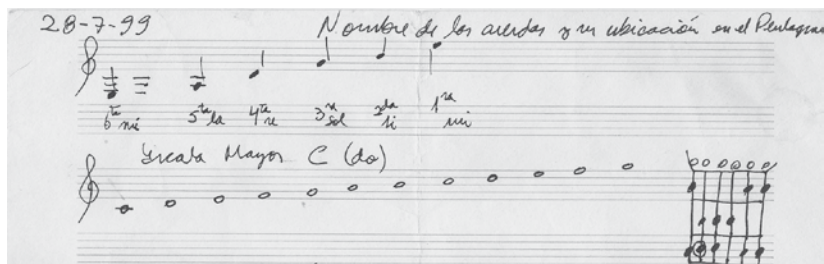 28-7-99 Nombre de las cuerdas y su ubicación en el Pentagrama
6ta mi 5ta la 4ta re 3ra sol 2da si 1ra mi
Escala Mayor C (do)